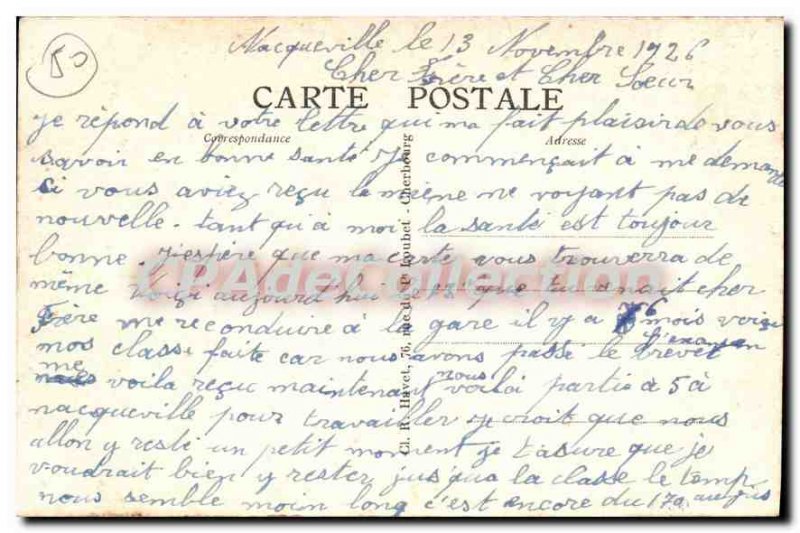 50
Nacqueville le 13 Novembre 1926
Cher Frère et Cher Sœur
CARTE POSTALE
Correspondance
Adresse
je répond à votre lettre qui ma fait plaisir de vous
savoir en bonne santé jy commençait à me demande
si vous aviez reçu la mienne me voyant pas de
nouvelle. tant qu'à moi la santé est toujour
bonne j'espère que ma carte vous trouverra de
même voiçi aujourd'hui que tu venait cher
Frère me reconduire à la gare il y a 6 mois voiçi
mos classe faite car nous avons passé le brevet
l'examen
me voila reçu maintenant nous voilà partie à 5 à
nacqueville pour travailler je croit que nous
allon y resté un petit moment je t'asure que je
voudrait bien y rester jusqua la classe le temp
nous semble moin long c'est encore du 170 au jus
Cl. R. Havet, 76, rue du Pt Loubet - Cherbourg
CPAdeCollection